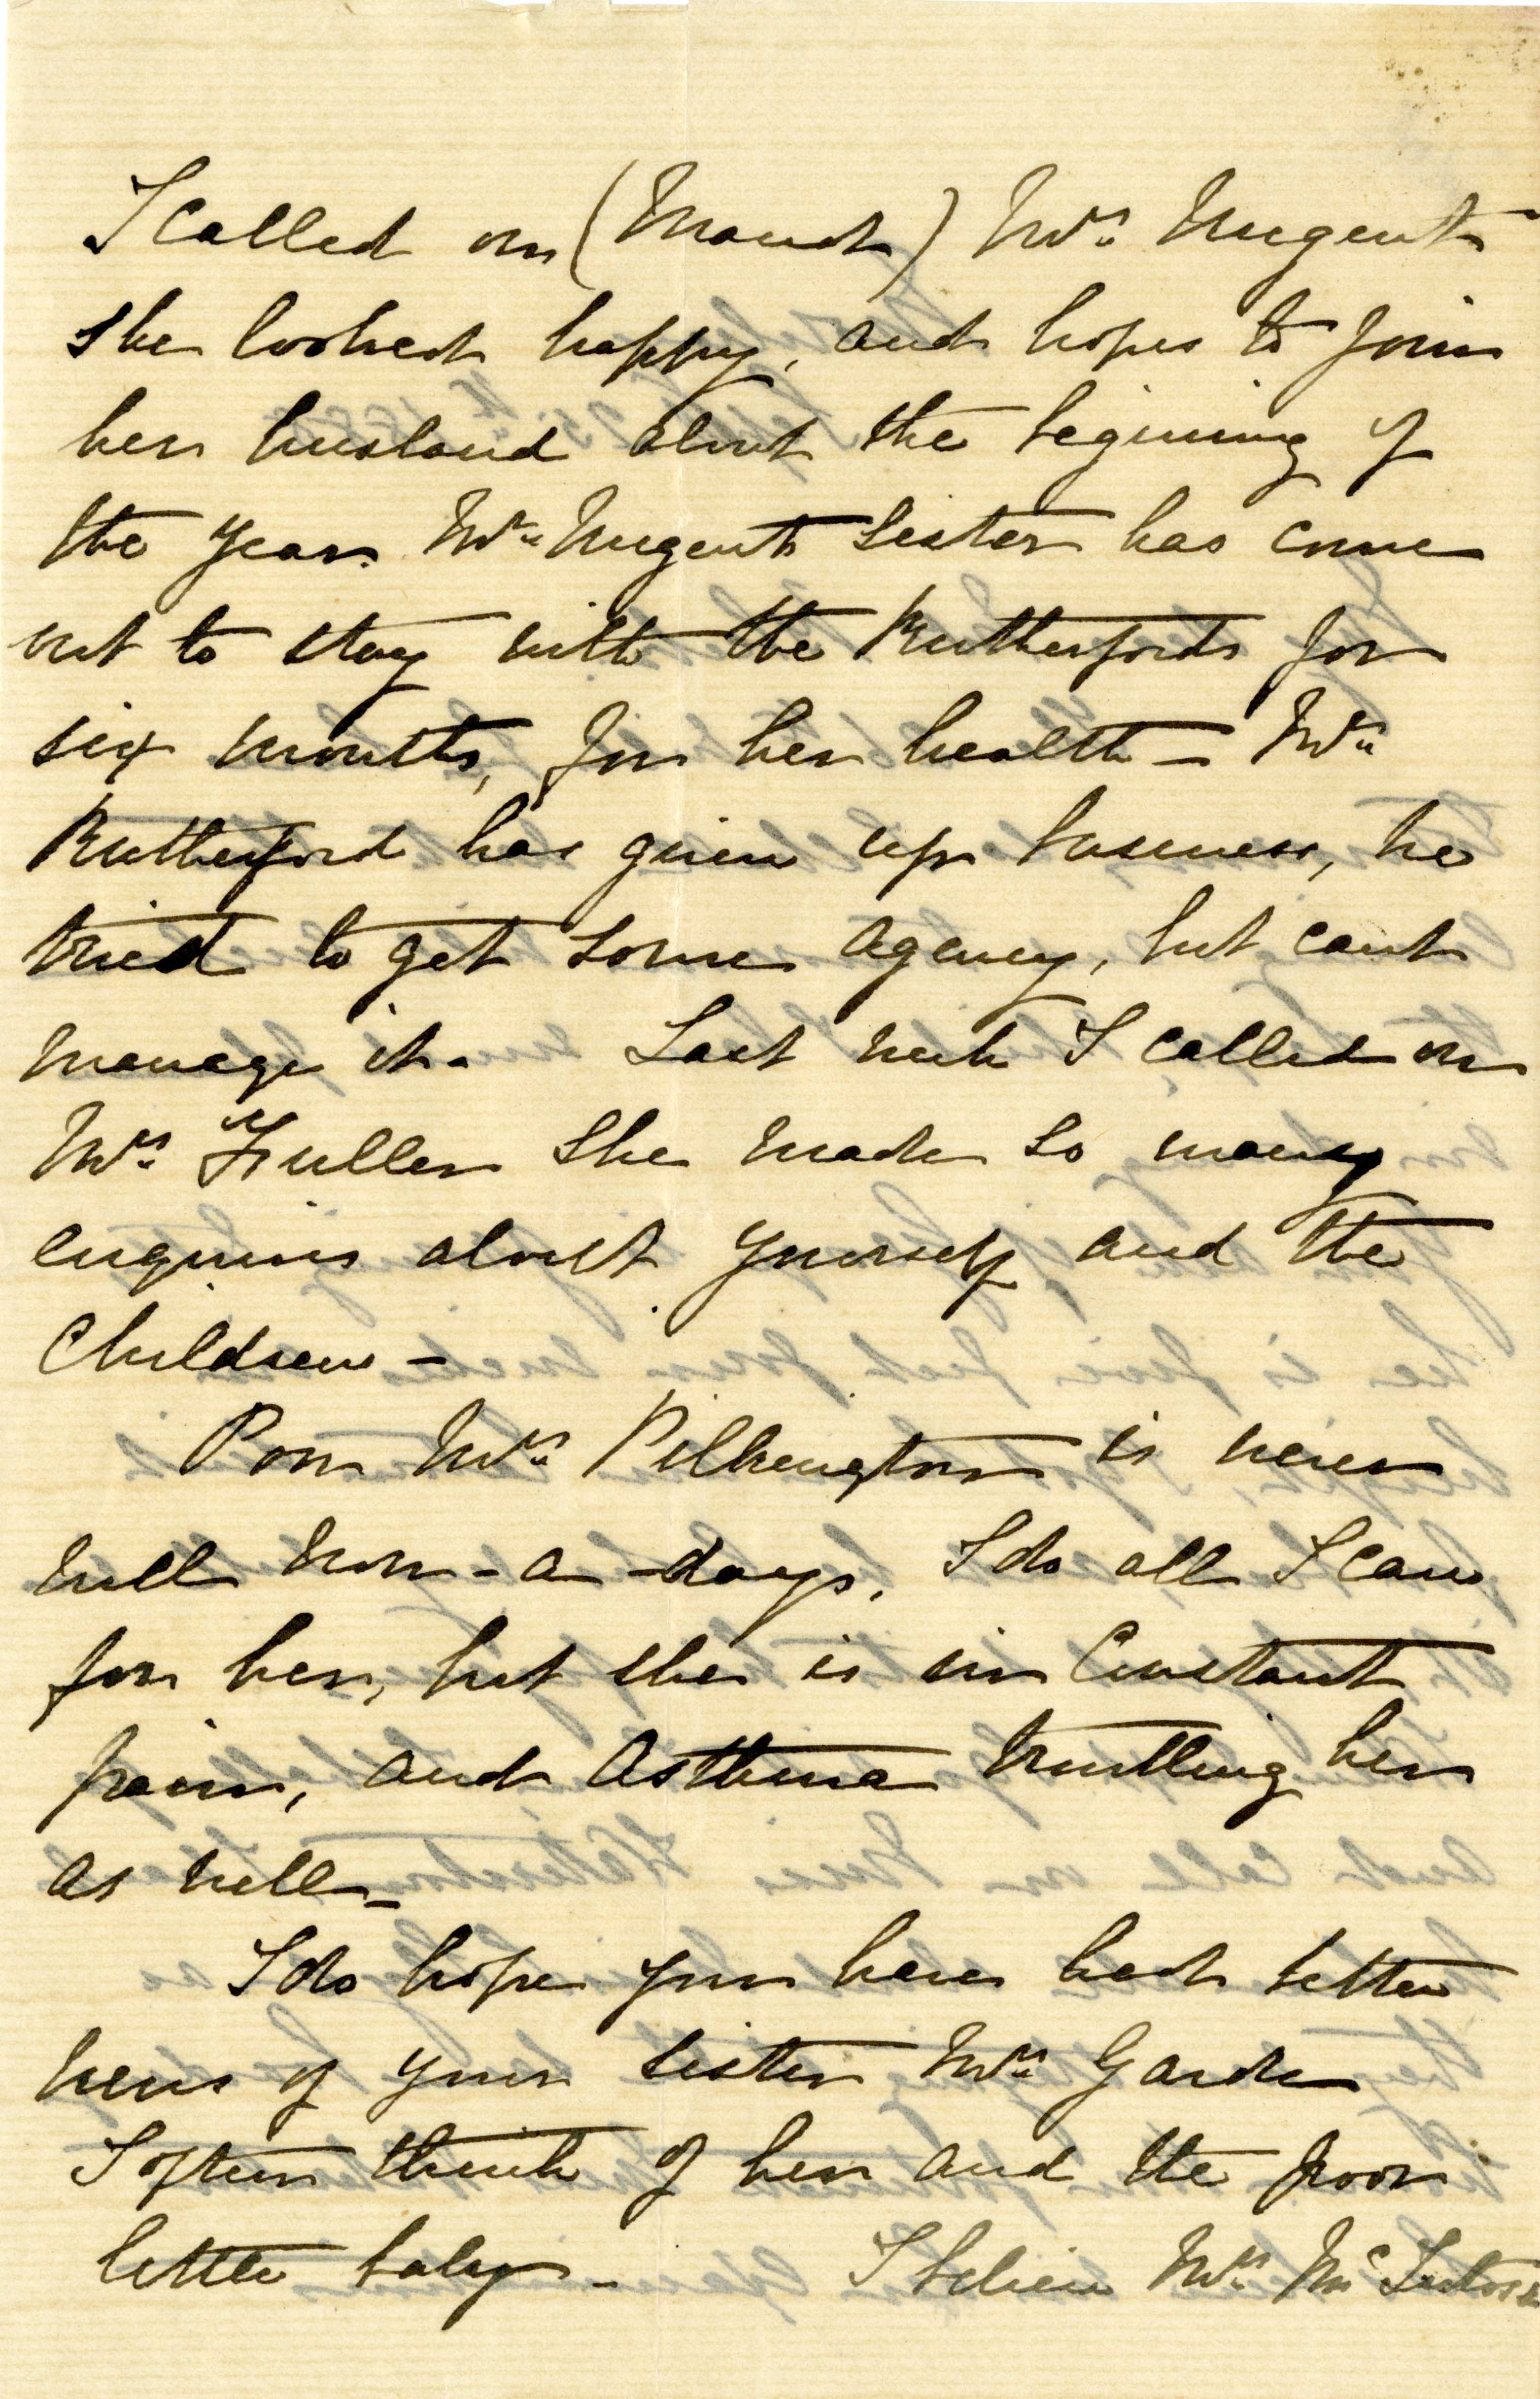 I called on (Maud) Mrs. Nugent
she looked happy, and hopes to join
her husband about the begining of
the year. Mr. Nugents sister has come
out to stay with the Rutherfords for
six months, for her health - Mr.
Rutherford has given up business, he
tried to get some agency, but cant
manage it. Last week I called on
Mrs. Fuller she made so many
enquiries about yourself and the
Children -
Poor Mrs. Pilkington is never
well now-a-days, I do all I can
for her, but she is in Constant
pain, and asthma troubling her
as well -
I do hope you have had better
news of your sister Mrs. Garde
I often think of her and the poor
little baby - I believe Mrs. McIntosh